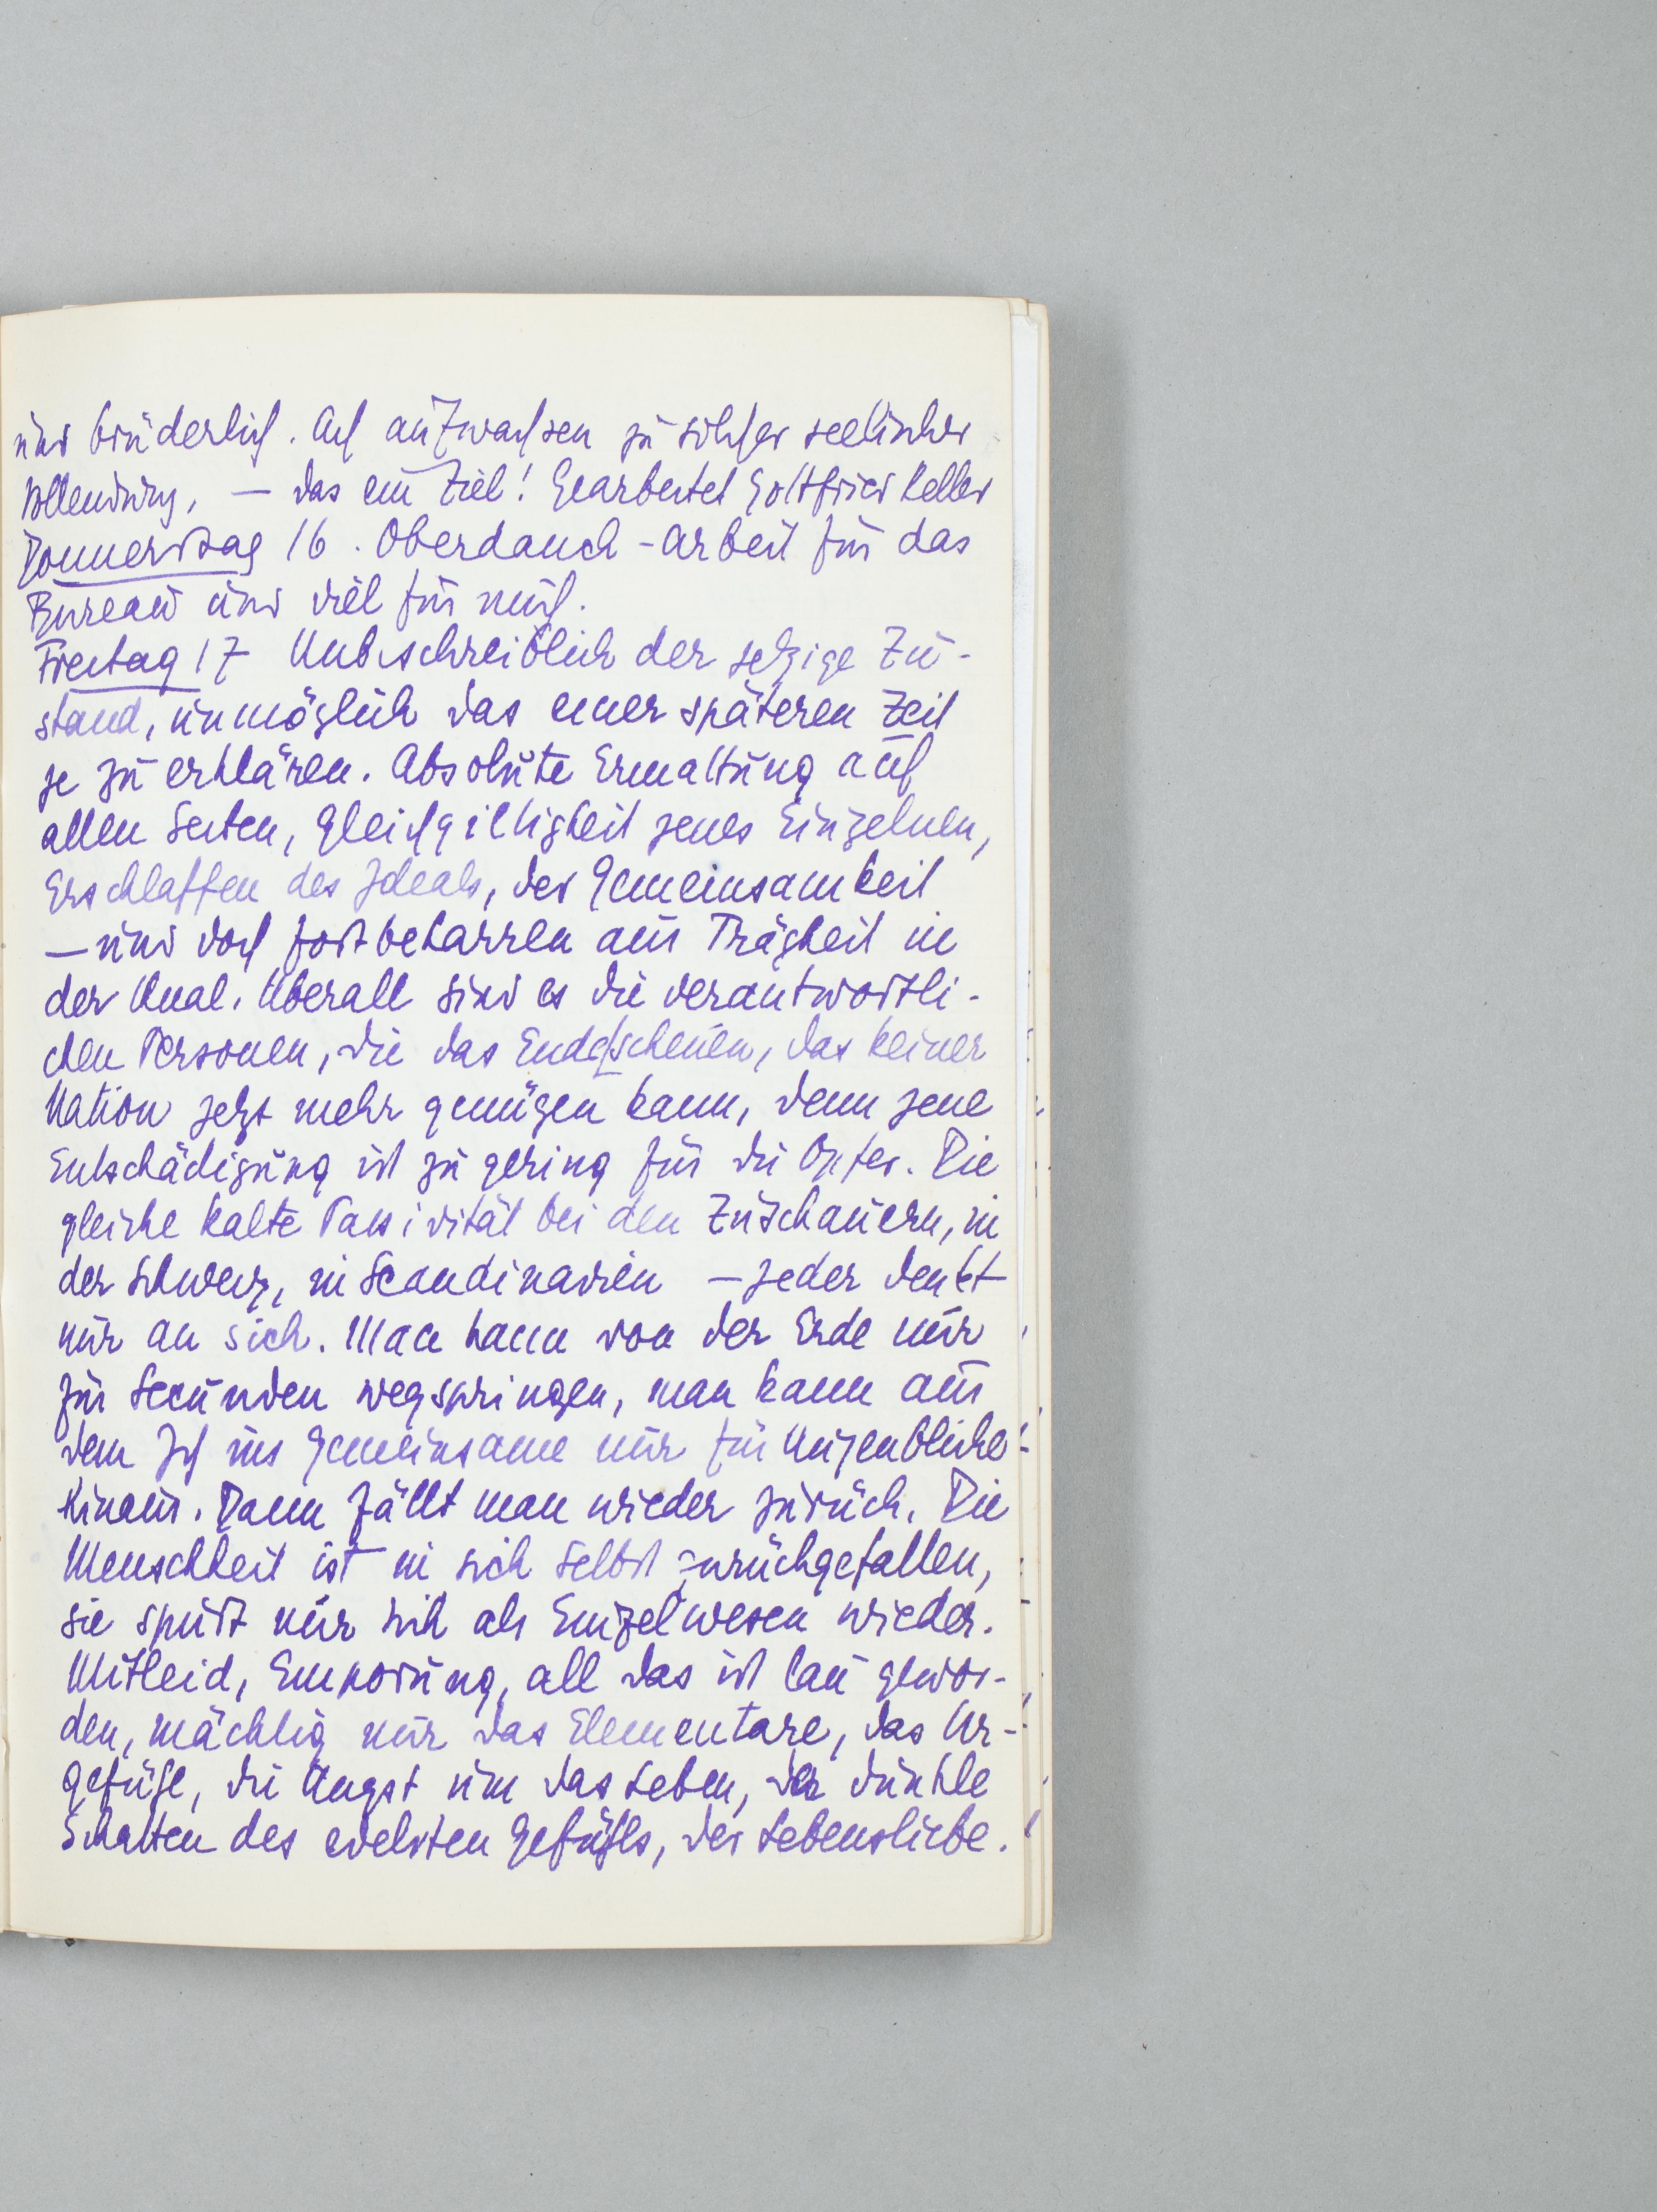 und brüderlich. Ach aufwachsen zu solcher seelischer
Vollendung, — das ein Ziel! Gearbeitet Gottfried Keller
Donnerstag 16. Oberdanch-Arbeit für das
Bureau und viel für mich.
Freitag 17 Unbeschreiblich der jetzige Zu-
stand, unmöglich das einer späteren Zeit
je zu erklären. Absolute Ermattung auf
allen Seiten, Gleichgiltigkeit jenes Einzelnen,
Erschlaffen des Ideals, der Gemeinsamkeit
— und doch fortbeharren aus Trägheit in
der Qual. Überall sind es die verantwortli-
chen Personen, die das Ende scheuen, das keiner
Nation jetzt mehr genügen kann, denn jene
Entschädigung ist zu gering für die Opfer. Die
gleiche kalte Passivität bei den Zuschauern, in
der Schweiz, in Scandinavien — jeder denkt
nur an sich. Man kann von der Erde nur
für Secunden wegspringen, man kann aus
dem Ich ins Gemeinsame nur für Augenblicke
hinaus. Dann fällt man wieder zurück. Die
Menschheit ist in sich selbst zurückgefallen,
sie spürt nur sich als Einzelwesen wieder.
Mitleid, Empörung, all das ist lau gewor-
den, mächtig nur das Elementare, das Ur-
gefüge, die Angst um das Leben, der dunkle
Schatten des edelsten Gefühls, der Lebensliebe.